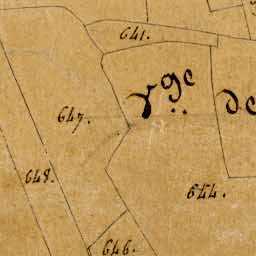 641.
Vge de
647.
648.
644.
646.